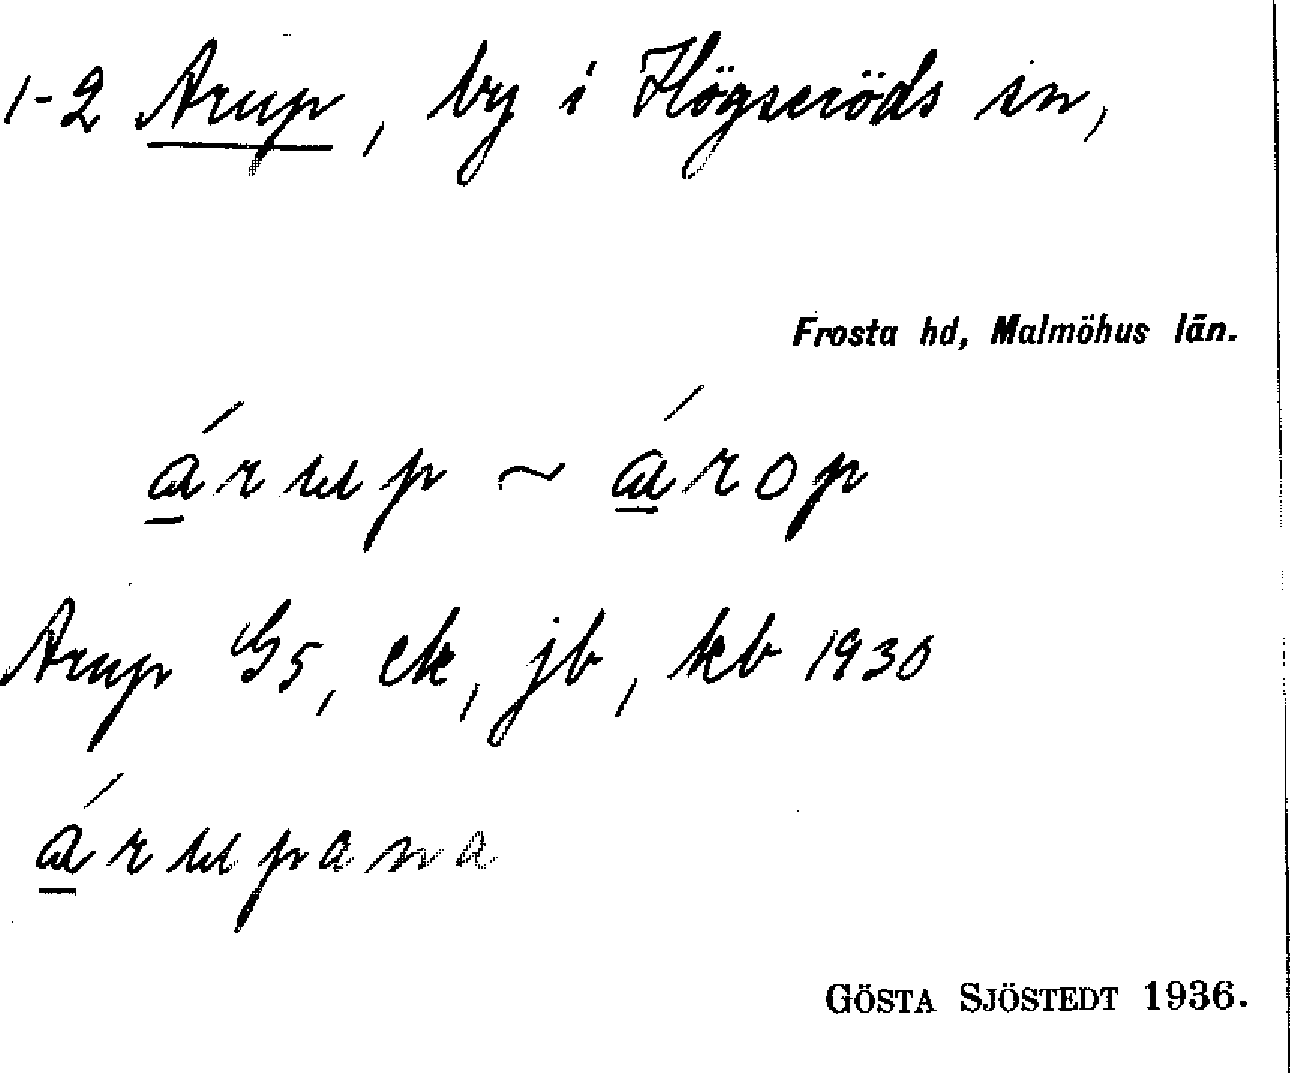 1-2 Arup, by i Högseröds sn,
Frosta hd, Malmöhus län.
árup ~ árop
Arup G5, ek, jb, kb 1930
árupana
GÖSTA SJÖSTEDT 1936.